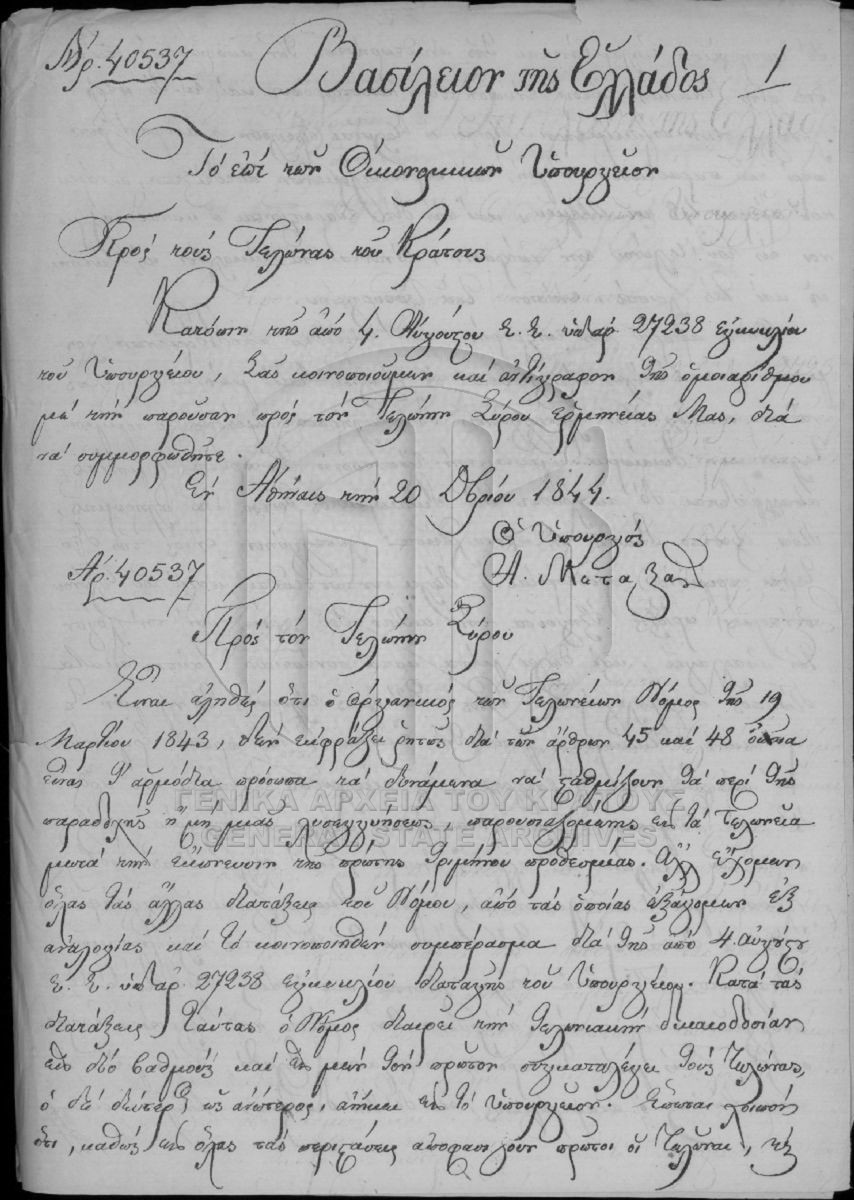 Ἀρ. 40537
Βασίλειον τῆς Ἑλλάδος
1
Τό ἐπί τῶν Οἰκονομικῶν Ὑπουργεῖον
Πρός τούς Τελώνας τοῦ Κράτους
Κατόπιν τῆς ἀπό 4. Αὐγούστου ἐ. ἔ. ὑπ' ἀρ. 27238 ἐγκυκλίου
τοῦ Ὑπουργείου, Σᾶς κοινοποιοῦμεν καί ἀντίγραφον τῆς ὁμοιαρίθμου
μέ τήν παροῦσαν πρός τόν Τελώνην Σύρου ἑρμηνείας Μας, διά
νά συμμορφωθῆτε.
Ἐν Ἀθήναις τήν 20 Ὀβρίου 1844.
Ὁ Ὑπουργός
Α. Μεταξᾶς
Ἀρ. 40537
Πρός τόν Τελώνην Σύρου
Εἶναι ἀληθές ὅτι ὁ ὀργανικός τῶν Τελωνείων Νόμος τῆς 19
Μαρτίου 1843, δέν ἐκφράζει ῥητῶς διά τῶν ἄρθρων 45 καί 48 ὁποῖα
εἶναι τ' ἁρμόδια πρόσωπα τά δυνάμενα νά σταθμίζουν τά περί τῆς
παραδοχῆς ἤ μή μιᾶς λυσεγγυήσεως, παρουσιαζομένης εἰς τά Τελωνεῖα
μετά τήν ἐκπνευσιν τῆς πρώτης τριμήνου προθεσμίας. Ἀλλ' εὔχομεν
ὅλας τάς ἄλλας διατάξεις τοῦ Νόμου, ἀπό τάς ὁποίας ἐξάγομεν ἐξ
ἀναλογίας καί τό κοινοποιηθέν συμπέρασμα διά τῆς ἀπό 4 αὐγούστου
ἐ. ἔ. ὑπ' ἀρ. 27238 ἐγκυκλίου διαταγῆς τοῦ Ὑπουργείου. Κατά τάς
διατάξεις ταύτας ὁ Νόμος διαιρεῖ τήν τελωνιακήν δικαιοδοσίαν
εἰς δύο βαθμούς καί εἰς μέν τόν πρῶτον συγκαταλέγει τούς Τελώνας,
ὁ δέ δεύτερος ὡς ἀνώτερος, ἀνήκει εἰς τό Ὑπουργεῖον. Ἕπεται λοιπόν
ὅτι, καθώς εἰς ὅλας τάς περιστάσεις ἀποφασίζουν πρῶτοι οἱ Τελῶναι, ἐξ
ΓΕΝΙΚΑ ΑΡΧΕΙΑ ΤΟΥ ΚΡΑΤΟΥΣ
GENERAL STATE ARCHIVES